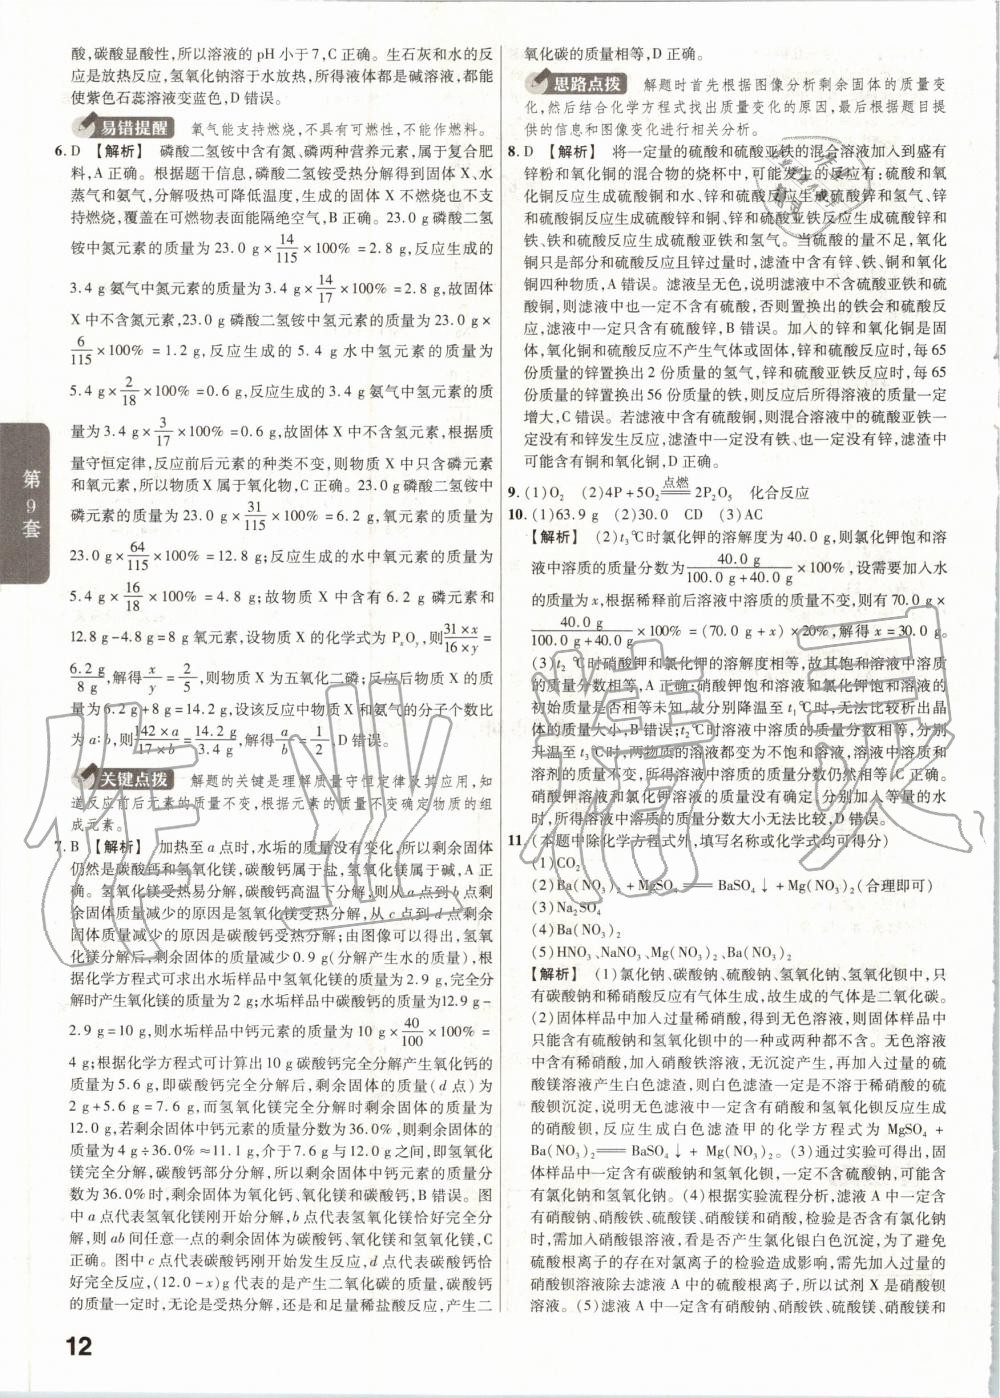 酸,碳酸显酸性,所以溶液的 pH 小于 7,C 正确。生石灰和水的反
应是放热反应,氢氧化钠溶于水放热,所得液体都是碱溶液,都能
使紫色石蕊溶液变蓝色,D 错误。
易错提醒 氧气能支持燃烧,不具有可燃性,不能作燃料。
6. D 【解析】 磷酸二氢铵中含有氮、磷两种营养元素,属于复合肥
料,A 正确。根据题干信息,磷酸二氢铵受热分解得到固体 X、水
蒸气和氨气,分解吸热可降低温度,生成的固体 X 不燃烧也不支
持燃烧,覆盖在可燃物表面能隔绝空气,B 正确。23.0 g 磷酸二氢
铵中氮元素的质量为 23.0 g×14/115×100%=2.8 g,反应生成的
3.4 g 氨气中氮元素的质量为 3.4 g×14/17×100%=2.8 g,故固体
X 中不含氮元素,23.0 g 磷酸二氢铵中氢元素的质量为 23.0 g×
6/115×100%=1.2 g,反应生成的 5.4 g 水中氢元素的质量为
5.4 g×2/18×100%=0.6 g,反应生成的 3.4 g 氨气中氢元素的质
量为 3.4 g×3/17×100%=0.6 g,故固体 X 中不含氢元素,根据质
量守恒定律,反应前后元素的种类不变,则物质 X 中只含磷元素
和氧元素,所以物质 X 属于氧化物,C 正确。磷酸二氢铵中
磷元素的质量为 23.0 g×31/115×100%=6.2 g,氧元素的质量为
23.0 g×64/115×100%=12.8 g;反应生成的水中氧元素的质量为
5.4 g×16/18×100%=4.8 g;故物质 X 中含有 6.2 g 磷元素和
12.8 g-4.8 g=8 g 氧元素,设物质 X 的化学式为 PxOy,则31×x/16×y=
6.2 g/8 g,解得x/y=2/5,则物质 X 为五氧化二磷;反应后物质 X 的质
量为 6.2 g+8 g=14.2 g,设该反应中物质 X 和氨气的分子个数比
为 a∶b,则142×a/17×b=14.2 g/3.4 g,解得a/b=1/2,D 错误。
关键点拨 解题的关键是理解质量守恒定律及其应用,知
道反应前后元素的质量不变,根据元素的质量不变确定物质的组
成元素。
7. B 【解析】 加热至 a 点时,水垢的质量没有变化,所以剩余固体
仍然是碳酸钙和氢氧化镁,碳酸钙属于盐,氢氧化镁属于碱,A 正
确。氢氧化镁受热易分解,碳酸钙高温下分解,则从 a 点到 b 点剩
余固体质量减少的原因是氢氧化镁受热分解,从 c 点到 d 点剩余
固体质量减少的原因是碳酸钙受热分解;由图像可以得出,氢氧
化镁分解后,剩余固体的质量减少 0.9 g(分解产生水的质量),根
据化学方程式可求出水垢样品中氢氧化镁的质量为 2.9 g,完全分
解时产生氧化镁的质量为 2 g;水垢样品中碳酸钙的质量为12.9 g-
2.9 g=10 g,则水垢样品中钙元素的质量为 10 g×40/100×100%=
4 g;根据化学方程式可计算出 10 g 碳酸钙完全分解产生氧化钙的
质量为 5.6 g,即碳酸钙完全分解后,剩余固体的质量(d 点)为
2 g+5.6 g=7.6 g,而氢氧化镁完全分解时剩余固体的质量为
12.0 g,若剩余固体中钙元素的质量分数为 36.0%,则剩余固体的质量为
4 g÷36.0%≈11.1 g,介于 7.6 g 与 12.0 g 之间,即氢氧化
镁完全分解,碳酸钙部分分解,所以剩余固体中钙元素的质量分
数为 36.0%时,剩余固体为氧化钙、氧化镁和碳酸钙,B 错误。图
中 a 点代表氢氧化镁刚开始分解,b 点代表氢氧化镁恰好完全分
解,则 ab 间任意一点的剩余固体为碳酸钙、氧化镁和氢氧化镁,C
正确。图中 c 点代表碳酸钙刚开始发生反应,d 点代表碳酸钙恰
好完全反应,(12.0-x)g 代表的是产生二氧化碳的质量,碳酸钙
的质量一定时,无论是受热分解,还是和足量稀盐酸反应,产生二
氧化碳的质量相等,D 正确。
思路点拨 解题时首先根据图像分析剩余固体的质量变
化,然后结合化学方程式找出质量变化的原因,最后根据题目提
供的信息和图像变化进行相关分析。
8. D 【解析】 将一定量的硫酸和硫酸亚铁的混合溶液加入到盛有
锌粉和氧化铜的混合物的烧杯中,可能发生的反应有:硫酸和氧
化铜反应生成硫酸铜和水、锌和硫酸反应生成硫酸锌和氢气、锌
和硫酸铜反应生成硫酸锌和铜、锌和硫酸亚铁反应生成硫酸锌和
铁、铁和硫酸反应生成硫酸亚铁和氢气。当硫酸的量不足,氧化
铜只是部分和硫酸反应且锌过量时,滤渣中含有锌、铁、铜和氧化
铜四种物质,A 错误。滤液呈无色,说明滤液中不含硫酸亚铁和硫
酸铜,则滤液中也一定不含有硫酸,否则置换出的铁会和硫酸反
应,滤液中一定只含有硫酸锌,B 错误。加入的锌和氧化铜是固
体,氧化铜和硫酸反应不产生气体或固体,锌和硫酸反应时,每 65
份质量的锌置换出 2 份质量的氢气,锌和硫酸亚铁反应时,每 65
份质量的锌置换出 56 份质量的铁,则反应后所得溶液的质量一定
增大,C 错误。若滤液中含有硫酸铜,则混合溶液中的硫酸亚铁一
定没有和锌发生反应,滤渣中一定没有铁、也一定没有锌,滤渣中
可能含有铜和氧化铜,D 正确。
9. (1)O₂ (2)4P+5O₂ =点燃= 2P₂O₅ 化合反应
10. (1)63.9 g (2)30.0 CD (3)AC
【解析】 (2)t₃℃时氯化钾的溶解度为 40.0 g,则氯化钾饱和溶
液中溶质的质量分数为40.0 g/(100.0 g+40.0 g)×100%,设需要加入水
的质量为 x,根据稀释前后溶液中溶质的质量不变,则有 70.0 g×
40.0 g/(100.0 g+40.0 g)×100%=(70.0 g+x)×20%,解得 x=30.0 g。
(3)t₂ ℃时硝酸钾和氯化钾的溶解度相等,故其饱和溶液中溶质
的质量分数相等,A 正确;硝酸钾饱和溶液和氯化钾饱和溶液的
初始质量是否相等未知,故分别降温至 t₁℃时,无法比较析出晶
体的质量大小,B 错误;t₂℃时硝酸钾和氯化钾的溶解度相等,分别
升温至 t₃℃时,两物质的溶液都变为不饱和溶液,溶液中溶质和
和溶剂的质量不变,所得溶液中溶质的质量分数仍然相等,C 正确。
硝酸钾溶液和氯化钾溶液的质量没有确定,分别加入等量的水
时,所得溶液中溶质的质量分数大小无法比较,D 错误。
11. (本题中除化学方程式外,填写名称或化学式均可得分)
(1)CO₂
(2)Ba(NO₃)₂+MgSO₄══BaSO₄↓+Mg(NO₃)₂(合理即可)
(3)Na₂SO₄
(4)Ba(NO₃)₂
(5)HNO₃、NaNO₃、Mg(NO₃)₂、Ba(NO₃)₂
【解析】 (1)氯化钠、碳酸钠、硫酸钠、氢氧化钠、氢氧化钡中,只
有碳酸钠和稀硝酸反应有气体生成,故生成的气体是二氧化碳。
(2)固体样品中加入过量稀硝酸,得到无色溶液,则原固体样品中
只能含有硫酸钠和氢氧化钡中的一种或两种都不含。无色溶液
中含有稀硝酸,加入硝酸铁溶液,无沉淀产生,再加入过量的硫
酸镁溶液产生白色滤渣,则白色滤渣一定是不溶于稀硝酸的硫
酸钡沉淀,说明无色滤液中一定含有硝酸和氢氧化钡反应生成
的硝酸钡,反应生成白色滤渣甲的化学方程式为 MgSO₄ +
Ba(NO₃)₂══BaSO₄↓+Mg(NO₃)₂。(3)通过实验可得出,固
体样品中一定含有碳酸钠和氢氧化钡,一定不含硫酸钠,可能含
有氯化钠和氢氧化钠。(4)根据实验流程分析,滤液 A 中一定含
有硝酸钠、硝酸铁、硫酸镁、硝酸镁和硝酸,检验是否含有氯化钠
时,需加入硝酸银溶液,看是否产生氯化银白色沉淀,为了避免
硫酸根离子的存在对氯离子的检验造成影响,需先加入过量的
硝酸钡溶液除去滤液 A 中的硫酸根离子,所以试剂 X 是硝酸钡
溶液。(5)滤液 A 中一定含有硝酸钠、硝酸铁、硫酸镁、硝酸镁和
第9套
12
作业精灵